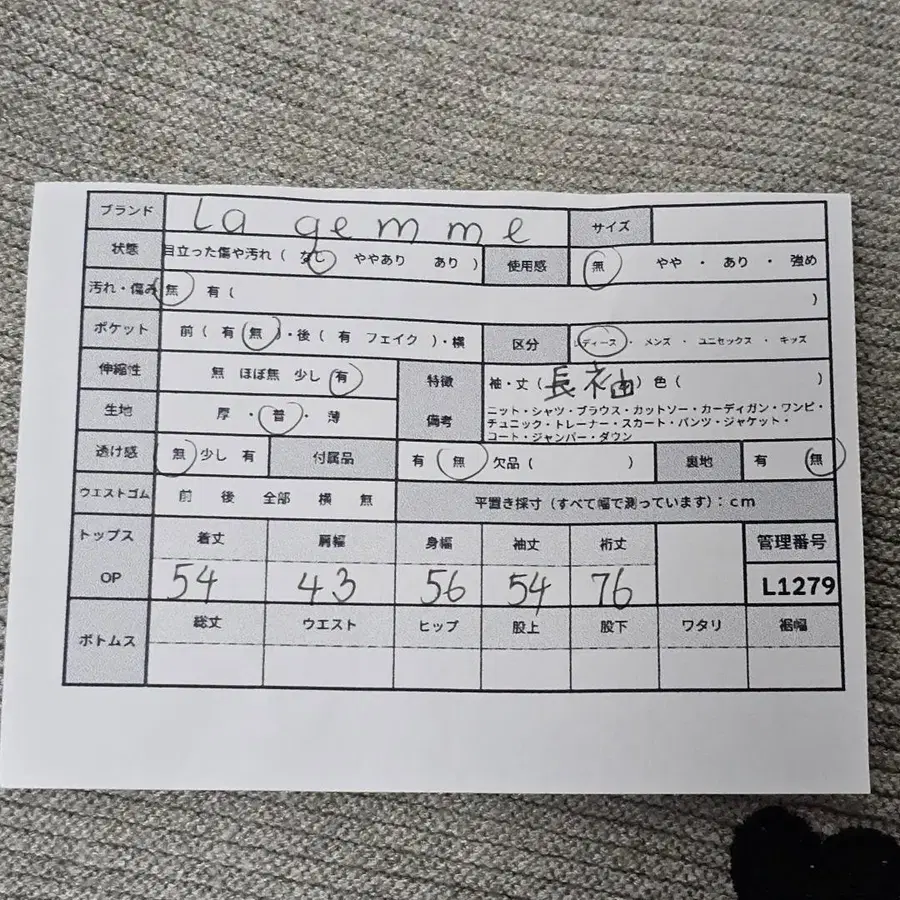 ブランド la gemme サイズ
状態 目立った傷や汚れ ( なし ややあり あり ) 使用感 無 やや ・ あり ・ 強め
汚れ・傷み 無 有 ( )
ポケット 前 ( 有 無 )・後 ( 有 フェイク )・横 区分 レディース ・ メンズ ・ ユニセックス ・ キッズ
伸縮性 無 ほぼ無 少し 有 特徴 袖・丈 ( 長袖 ) 色 ( )
生地 厚 ・ 普 ・ 薄 備考 ニット・シャツ・ブラウス・カットソー・カーディガン・ワンピ・
チュニック・トレーナー・スカート・パンツ・ジャケット・
コート・ジャンパー・ダウン
透け感 無 少し 有 付属品 有 無 欠品 ( ) 裏地 有 無
ウエストゴム 前 後 全部 横 無 平置き採寸 (すべて幅で測っています) : cm
トップス 着丈 肩幅 身幅 袖丈 裄丈 管理番号
OP 54 43 56 54 76 L1279
ボトムス 総丈 ウエスト ヒップ 股上 股下 ワタリ 裾幅